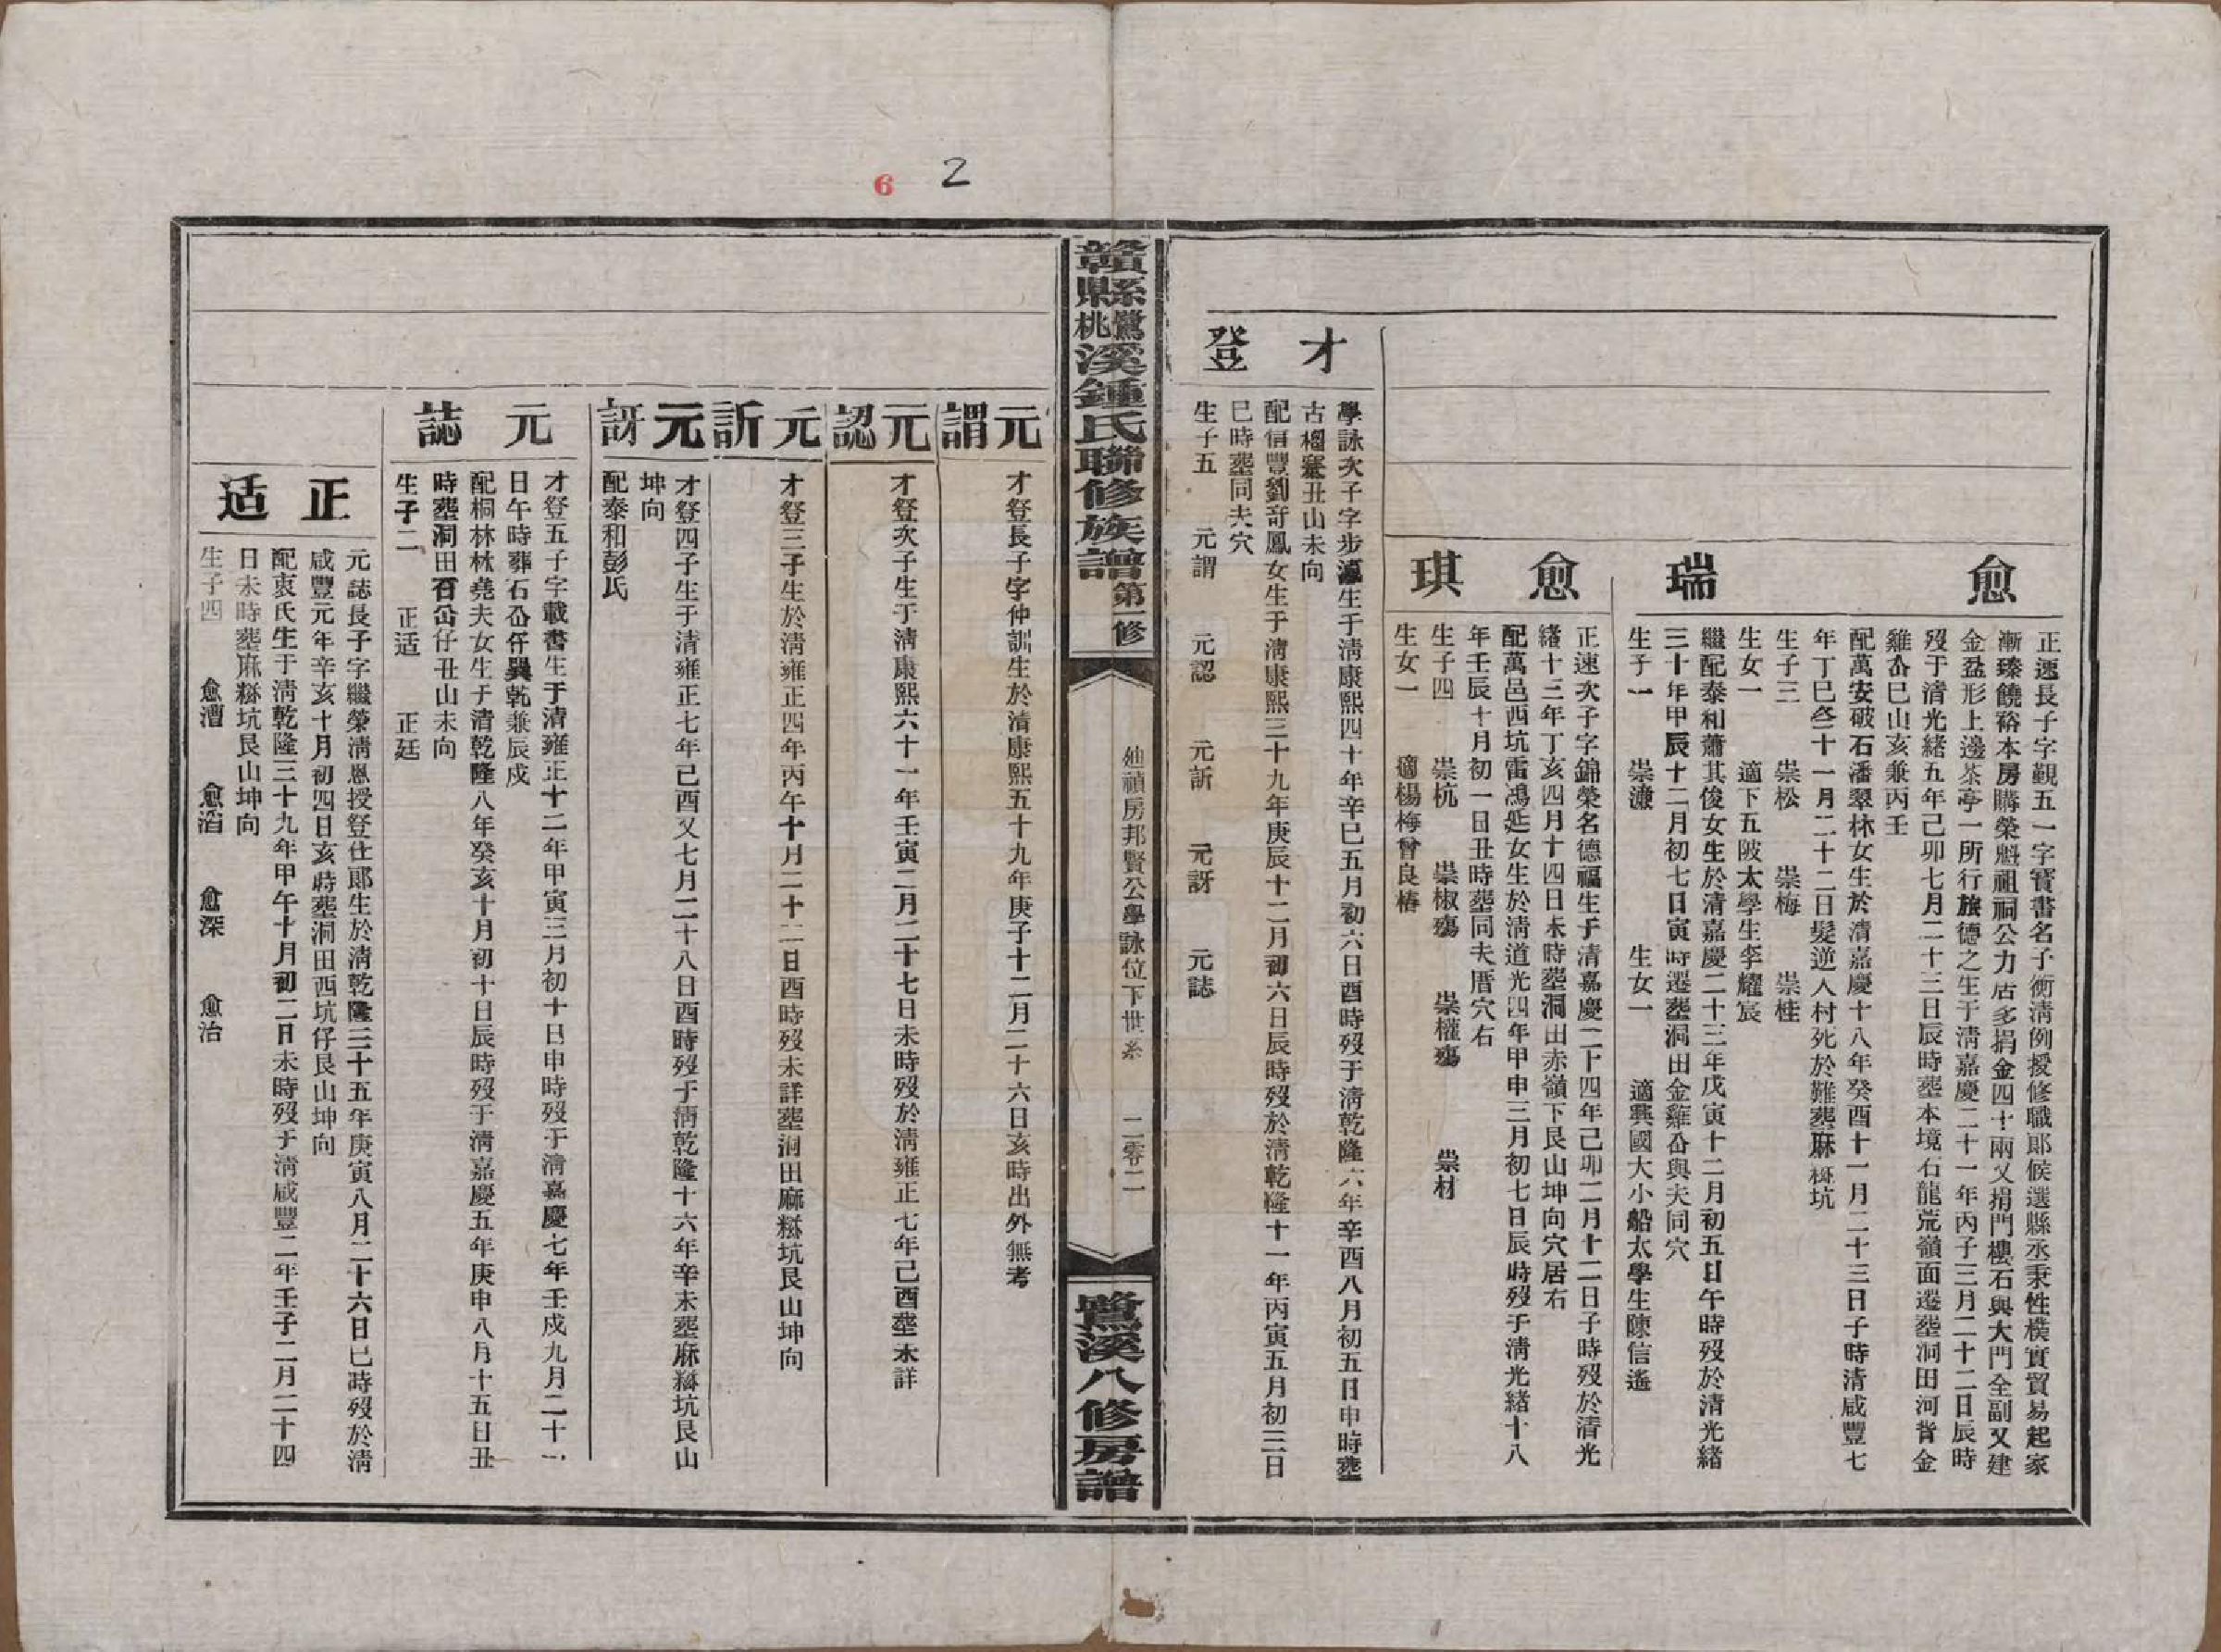 6
2
愈瑞
正速長子字觀五一字寶書名子衡清例授修職郎候選縣丞秉性樸實貿易起家
漸臻饒裕本房購榮魁祖祠公力居多捐金四十兩又捐門樓石與大門全副又建
金盆形上邊茶亭一所行旅德之生于清嘉慶二十一年丙子三月二十二日辰時
歿于清光緒五年己卯七月二十三日辰時塟本境石龍荒嶺面遷塟洞田河背金
雞㟋巳山亥兼丙壬
配萬安破石潘翠林女生於清嘉慶十八年癸酉十一月二十三日子時清咸豐七
年丁巳冬十一月二十二日髮逆入村死於難塟麻 坑
生子三 崇松 崇梅 崇桂
生女一 適下五陂太學生李耀宸
繼配泰和蕭其俊女生於清嘉慶二十三年戊寅十二月初五日午時歿於清光緒
三十年甲辰十二月初七日寅時遷塟洞田金雞㟋與夫同穴
生子一 崇濂 生女一 適興國大小船太學生陳信遙
愈琪
正速次子字錦榮名德福生于清嘉慶二十四年己卯二月十二日子時歿於清光
緒十三年丁亥四月十四日未時塟洞田赤嶺下艮山坤向穴居右
配萬邑西坑雷鴻延女生於清道光四年甲申三月初七日辰時歿于清光緒十八
年壬辰十月初一日丑時塟同夫厝穴右
生子四 崇杭 崇椒殤 崇權殤 崇材
生女一 適楊梅曾良樁
才登
學詠次子字步瀛生于清康熙四十年辛巳五月初六日酉時歿于清乾隆六年辛酉八月初五日申時塟
古榴寨丑山未向
配信豐劉奇鳳女生于清康熙三十九年庚辰十二月初六日辰時歿於清乾隆十一年丙寅五月初三日
巳時塟同夫穴
生子五 元謂 元認 元訢 元訝 元誌
贛縣鷺桃溪鍾氏聯修族譜第一修
廸禎房邦賢公學詠位下世系 二零二
鷺溪八修房譜
元謂
才登長子字仲訓生於清康熙五十九年庚子十二月二十六日亥時出外無考
元認
才登次子生于清康熙六十一年壬寅二月二十七日未時歿於清雍正七年己酉塟未詳
元訢
才登三子生於清雍正四年丙午十月二十二日酉時歿未詳塟洞田麻 坑艮山坤向
元訝
才登四子生于清雍正七年己酉又七月二十八日酉時歿于清乾隆十六年辛未塟麻 坑艮山
坤向
配泰和彭氏
元誌
才登五子字載書生于清雍正十二年甲寅三月初十日申時歿于清嘉慶七年壬戌九月二十一
日午時葬石㟋仔巽乾兼辰戌
配桐林林堯夫女生于清乾隆八年癸亥十月初十日辰時歿于清嘉慶五年庚申八月十五日丑
時塟洞田石㟋仔丑山未向
生子二 正适 正廷
正适
元誌長子字繼榮清恩授登仕郎生於清乾隆三十五年庚寅八月二十六日巳時歿於清
咸豐元年辛亥十月初四日亥時塟洞田西坑仔艮山坤向
配衷氏生于清乾隆三十九年甲午十月初二日未時歿于清咸豐二年壬子二月二十四
日未時塟麻 坑艮山坤向
生子四 愈漕 愈滔 愈深 愈治